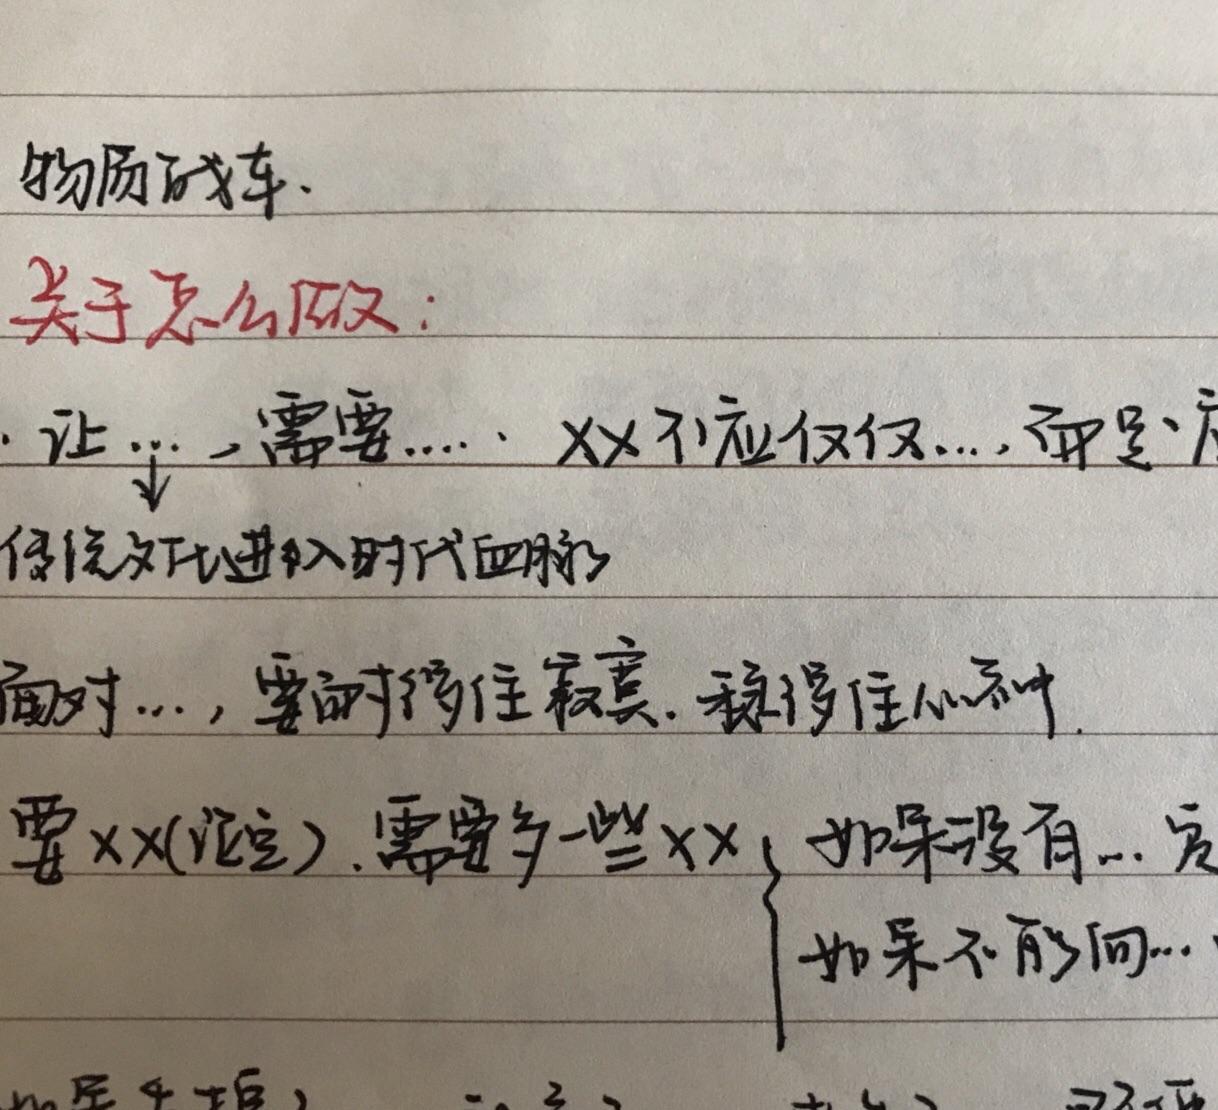 物质战车.
关于怎么做:
· 让…, 需要….. XX不应仅仅…, 而是、应
传统文化进入时代血脉
面对…, 要耐得住寂寞. 稳得住心神.
要XX(论定). 需要多一些XX, 如果没有…
如果不能向…